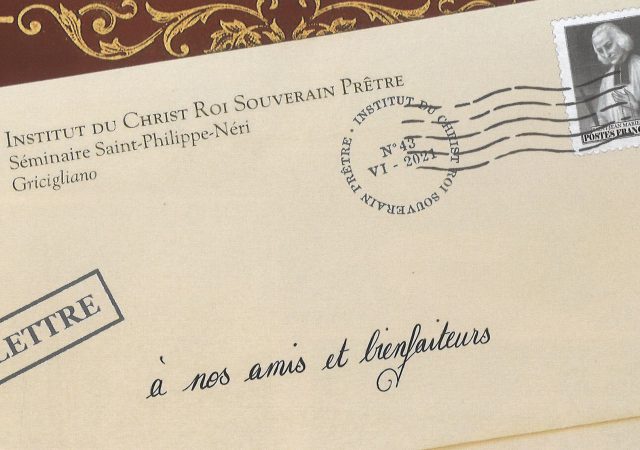 INSTITUT DU CHRIST ROI SOUVERAIN PRÊTRE
Séminaire Saint-Philippe-Néri
Gricigliano
· INSTITUT DU CHRIST ROI SOUVERAIN PRÊTRE
N°43
VI - 2021
POSTES FRANÇ
LETTRE
à nos amis et bienfaiteurs